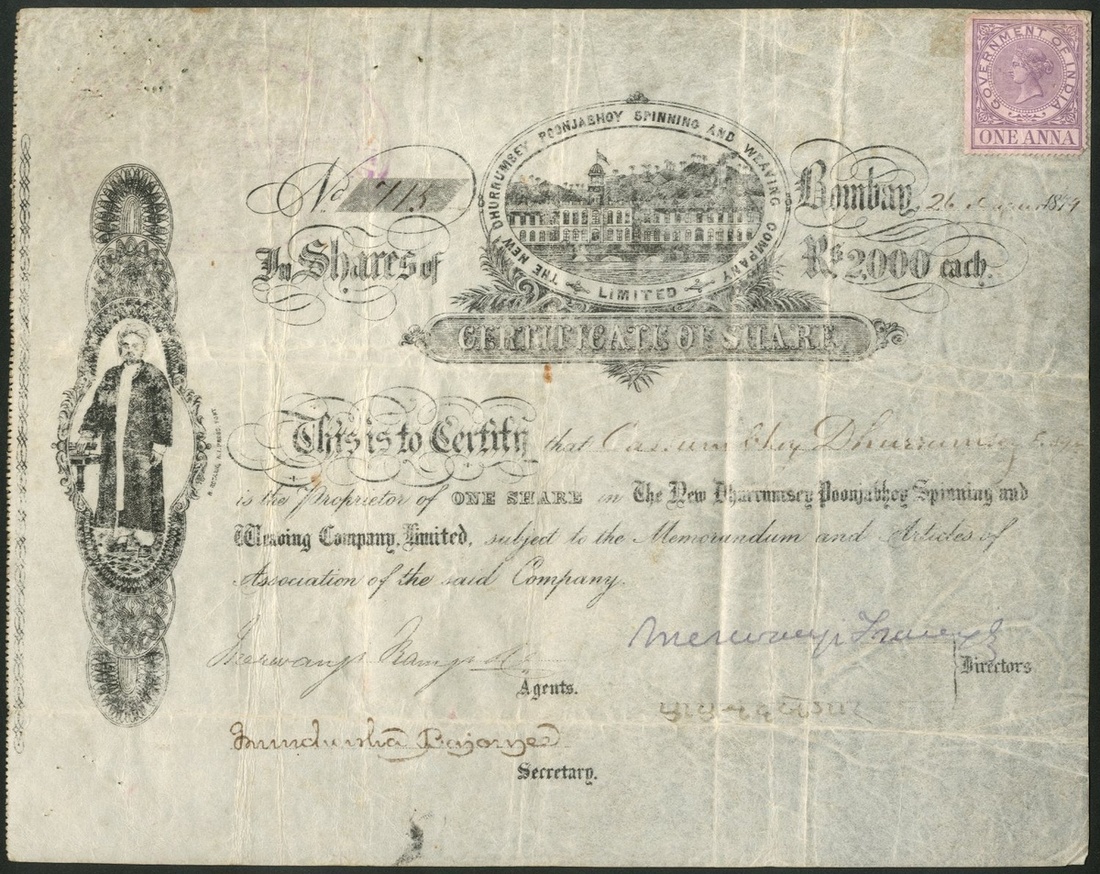 GOVERNMENT OF INDIA
ONE ANNA
THE NEW DHURRUMSEY POONJABHOY SPINNING AND WEAVING COMPANY
LIMITED
No 715
Bombay, 26 1879
In Shares of
Rs 2000 each.
CERTIFICATE OF SHARE,
This is to Certify that Dhurrumsey Esqr
is the Proprietor of ONE SHARE in The New Dhurrumsey Poonjabhoy Spinning and
Weaving Company, Limited, subject to the Memorandum and Articles of
Association of the said Company.
Merwanji Framji
Merwanji Framji
Directors
Agents.
Secretary.